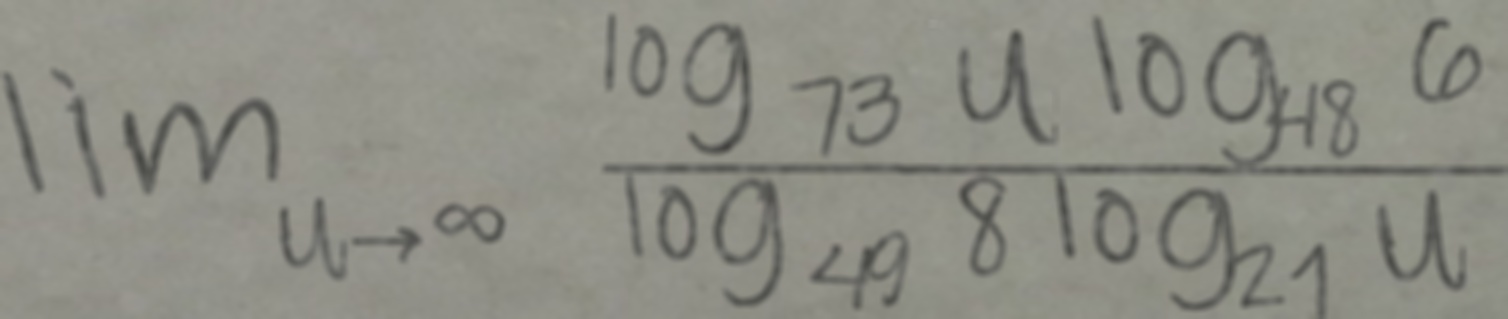 lim u→∞ log 73 u log 48 6
log 49 8 log 21 u